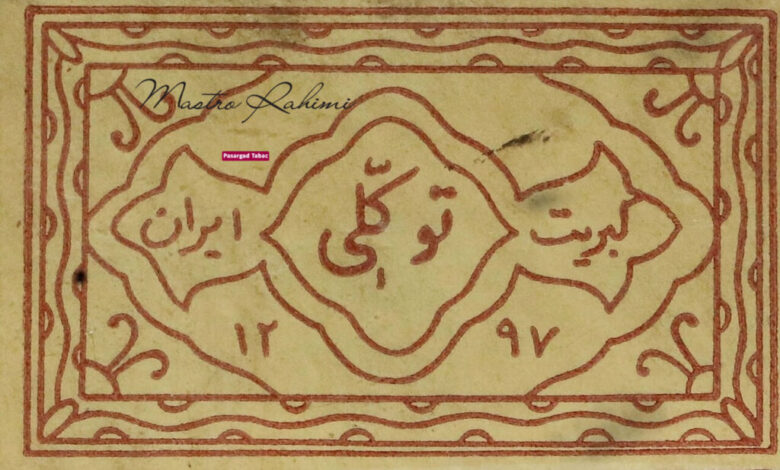 Mastro Rahimi
Pasargad Tabac
کبریت توکّلی ایران
۱۲ ۹۷